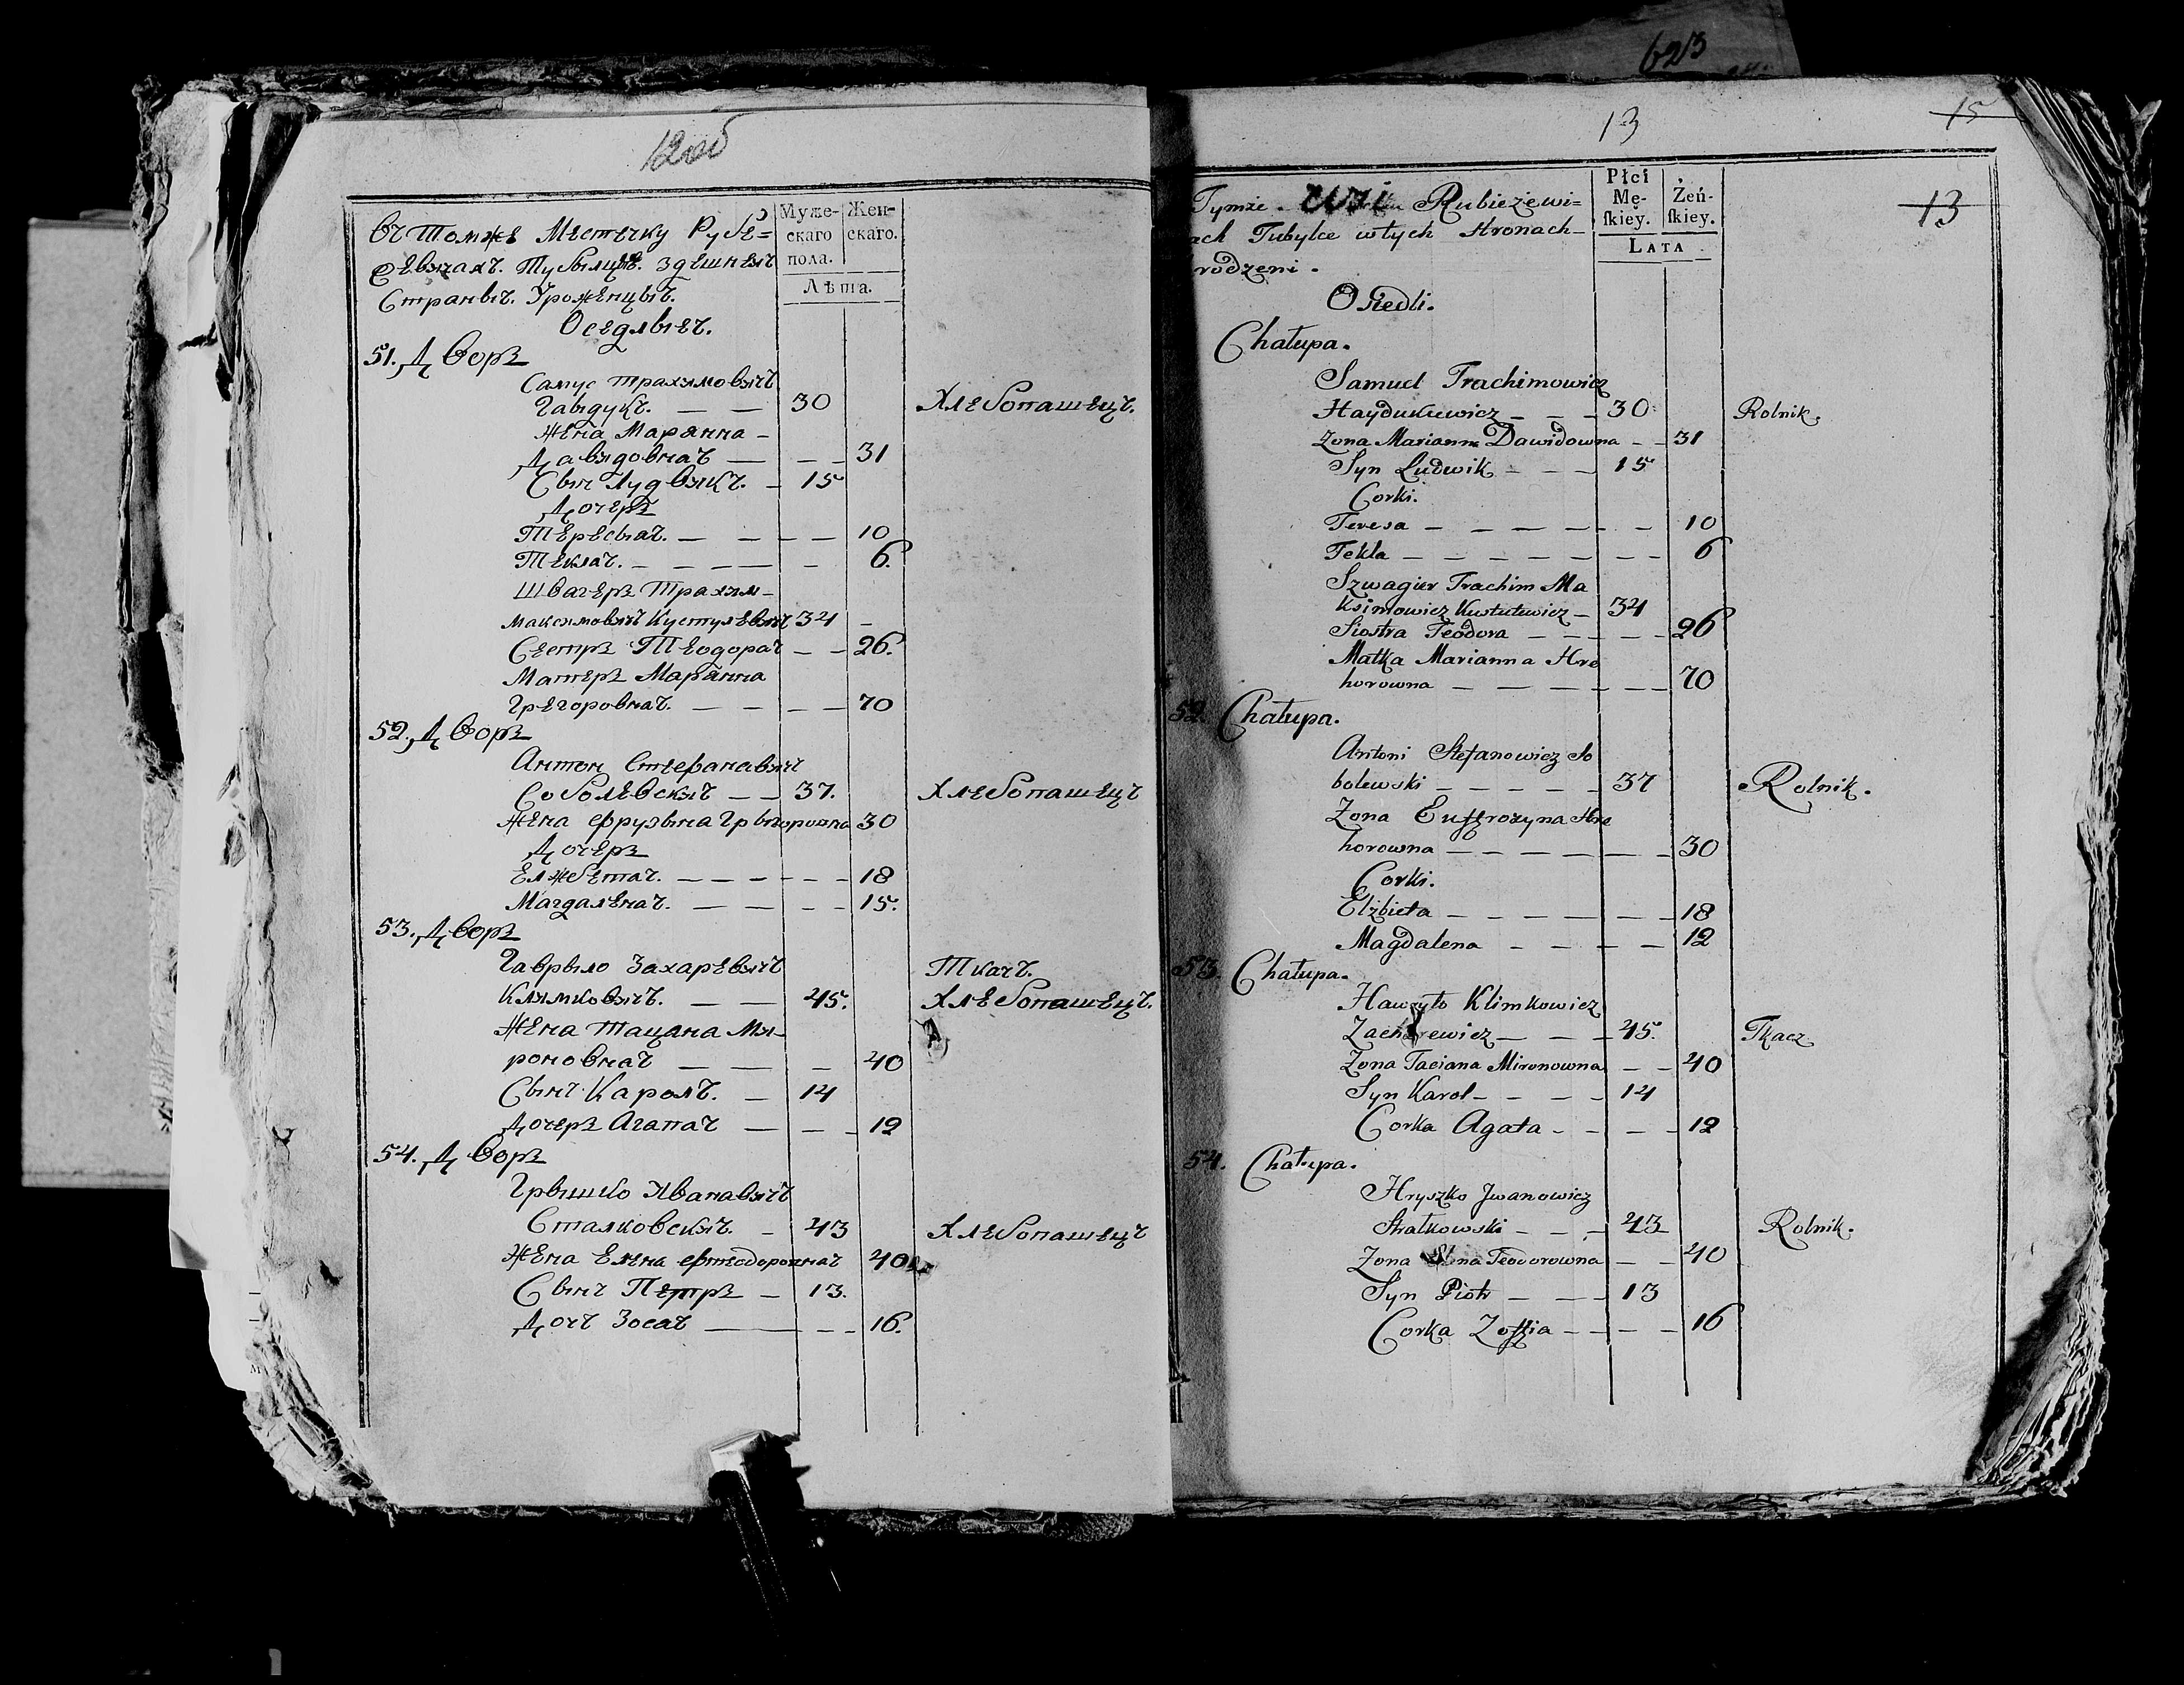 623
12об
въ томже Местечку Рубе=
жевичахъ. Тубылцы здешнихъ
Странъ. Уроженцы.
Оседлые.
Муже-
скаго
пола.
Жен-
скаго.
Лѣта.
51. Дворъ
Самус Трахимовичъ
Гайдукъ. — — 30 Хлебопашецъ.
жена Марянна –
Давидовна — — – 31
Сынъ Лудвикъ. – 15
Дочеръ
Тересыа. — — – — 10
Текла. – – — — – 6.
Швагеръ Трахим–
максимовичъ Кустулевичъ 34 –
Сестръ Теодора – – 26.
Матеръ Марянна
Грегоровна. — – — – 70
52. Дворъ
Антон Стефанавичъ
Соболевский — – 37. Хлебопашецъ
жена Фрузына Грыгоровна 30
Дочеръ
Елжбета. – – – – – – 18
Магдалена. — — – – 15.
53. Дворъ
Гаврыло Захаревичъ Ткачъ.
Климковичъ. — — 45. Хлебопашецъ.
Жена Тацяна Ми–
роновна — — – 40
Сынъ Каролъ. – 14
Дочеръ Агапа — – – 12
54. Дворъ
Грышко Иванавичъ
Сталковский. – 43 Хлебопашецъ
Жена Елена Фтеодоровна 40
Сынъ Петръ – 13.
Дочъ Зося — – – 16.
13
15
13
Tymże Rubieżewi=
ach Tubylce w tych Stronach–
rodzeni.
Osiedli.
Płci
Mę-
ſkiey.
Żeń-
ſkiey.
Lata
Chałupa.
Samuel Trachimowicz
Haydukiewicz – – – 30 Rolnik.
Zona Marianna Dawidowna – – 31
Syn Ludwik – – – 15
Corki.
Teresa – – — – – – 10
Tekla – – – – – – – – 6
Szwagier Trachim Ma
ksimowicz Kustulewicz – 34
Siostra Teodora – – – – – 26
Matka Marianna Hre
horowna – – – – – – – 70
52. Chałupa.
Antoni Stefanowicz So
bolewski – – – – – 37 Rolnik.
Zona Eufrozyna Hre
horowna – – – – – – – 30
Corki.
Elżbieta – – – – – – – 18
Magdalena – – – – – 12
53. Chałupa.
Hawryło Klimkowicz
Zacharewicz – – – 45. Tkacz
Zona Taciana Mironowna – – 40
Syn Karol – – – – 14
Corka Agata – – – – 12
54. Chałupa.
Hryszko Jwanowicz
Stałkowski – – – 43 Rolnik.
Zona Elena Teodorowna – – 40
Syn Piotr – – – 13
Corka Zoffia – – – – 16